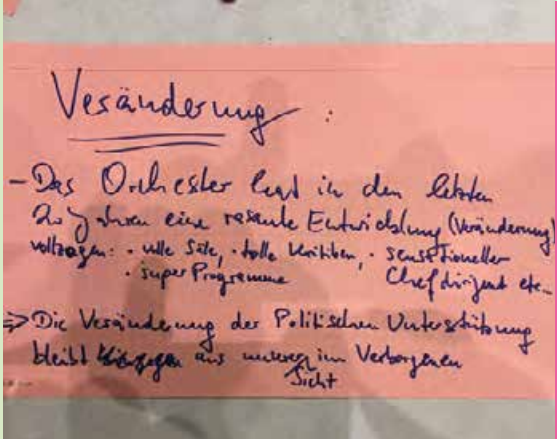 Veränderung:
- Das Orchester hat in den letzten
20 Jahren eine rasante Entwicklung (Veränderung)
vollzogen: · volle Säle, · tolle Kritiken, · sensationeller
· super Programme Chefdirigent etc.
=> Die Veränderung der Politischen Unterstützung
bleibt aus unserer Sicht im Verborgenen